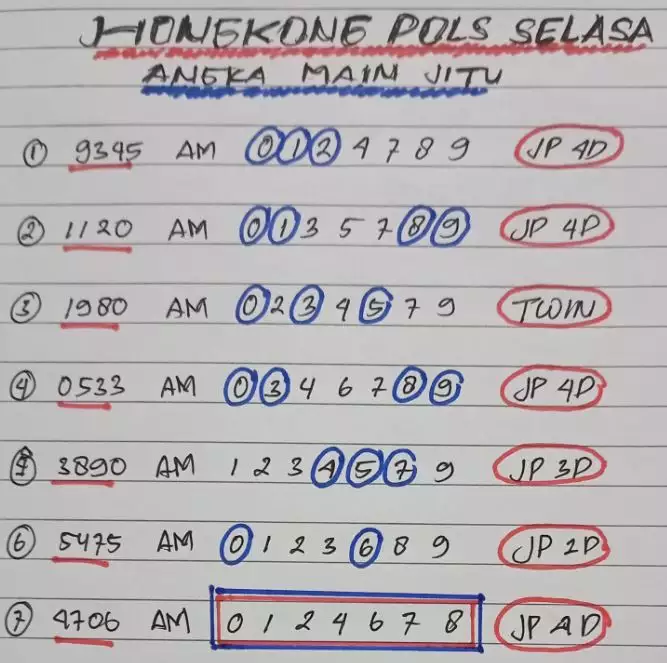 HONGKONG POLS SELASA
ANEKA MAIN JITU
① 9345 AM 0 1 2 4 7 8 9 JP 4D
② 1120 AM 0 1 3 5 7 8 9 JP 4D
③ 1980 AM 0 2 3 4 5 7 9 TWIN
④ 0533 AM 0 3 4 6 7 8 9 JP 4D
⑤ 3890 AM 1 2 3 4 5 7 9 JP 3D
⑥ 5475 AM 0 1 2 3 6 8 9 JP 2D
⑦ 4706 AM 0 1 2 4 6 7 8 JP 4D